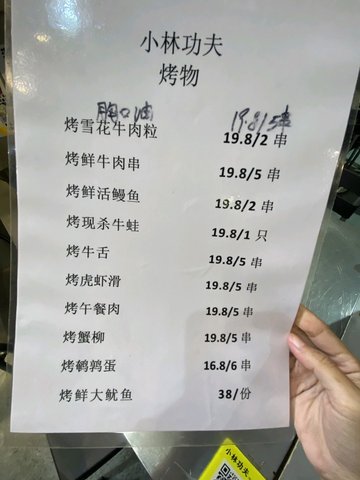 小林功夫
烤物
胸口油 19.8/5串
烤雪花牛肉粒 19.8/2 串
烤鲜牛肉串 19.8/5 串
烤鲜活鳗鱼 19.8/2 串
烤现杀牛蛙 19.8/1 只
烤牛舌 19.8/5 串
烤虎虾滑 19.8/5 串
烤午餐肉 19.8/5 串
烤蟹柳 19.8/5 串
烤鹌鹑蛋 16.8/6 串
烤鲜大鱿鱼 38/份
小林功夫